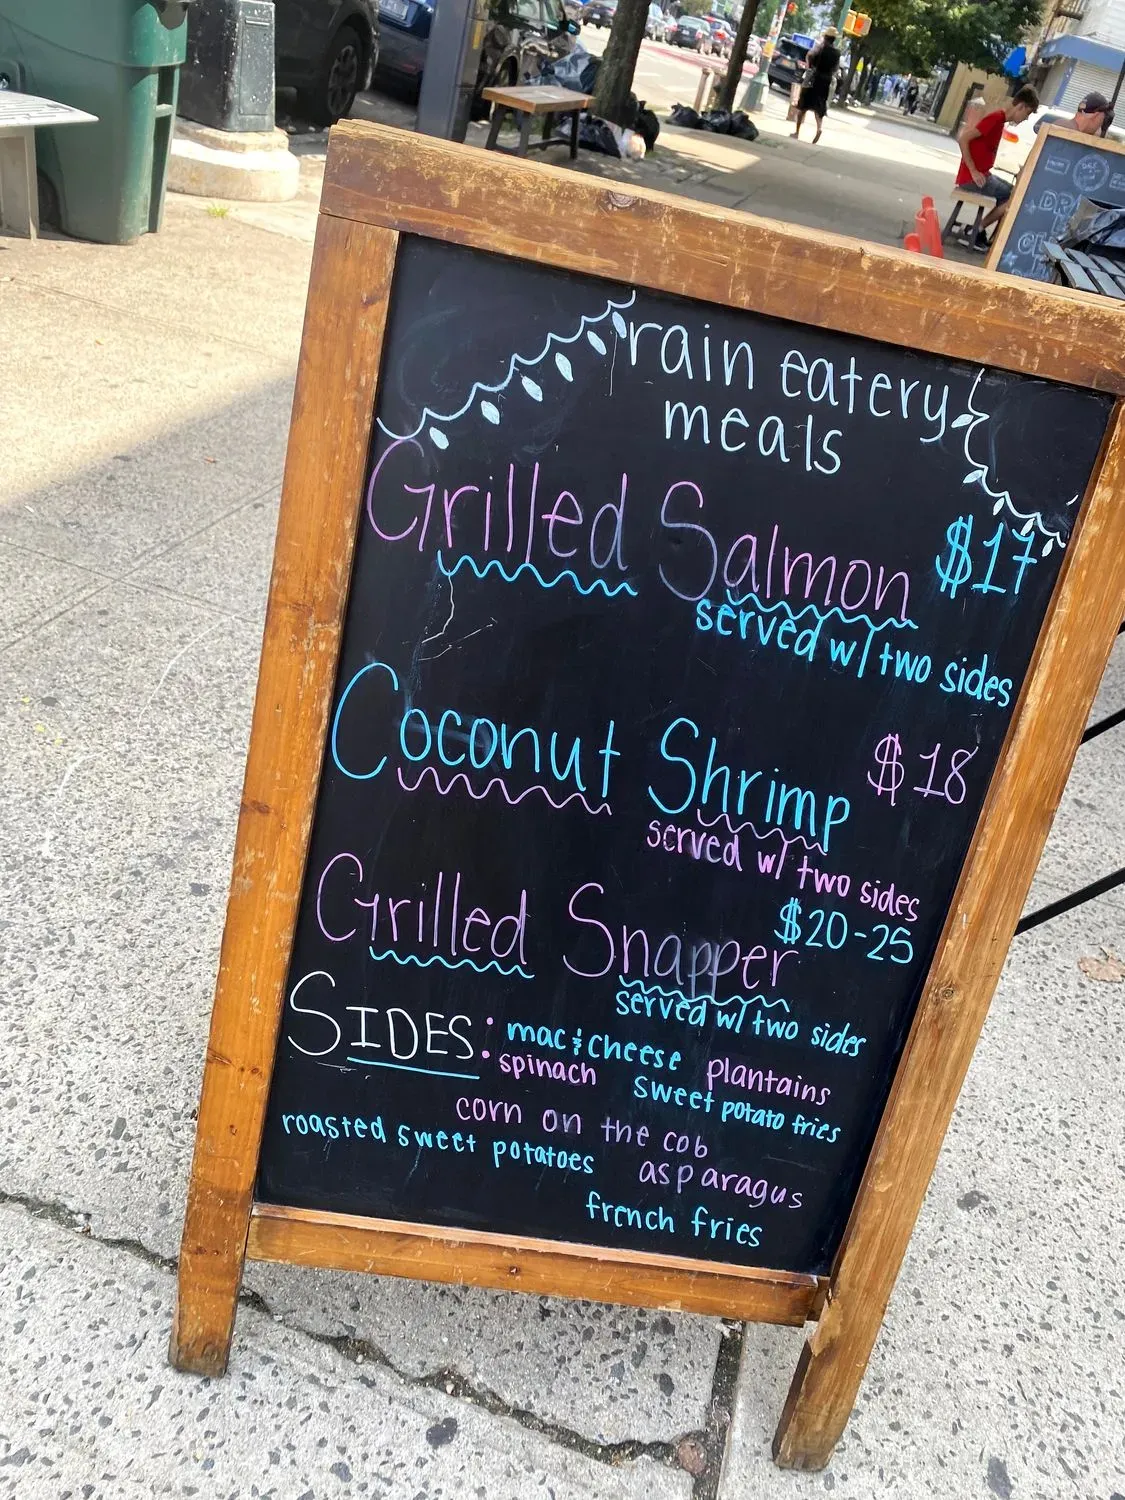 rain eatery
meals
Grilled Salmon $17
served w/ two sides
Coconut Shrimp $18
served w/ two sides
Grilled Snapper $20-25
served w/ two sides
SIDES: mac & cheese plantains
spinach sweet potato fries
corn on the cob
roasted sweet potatoes asparagus
french fries